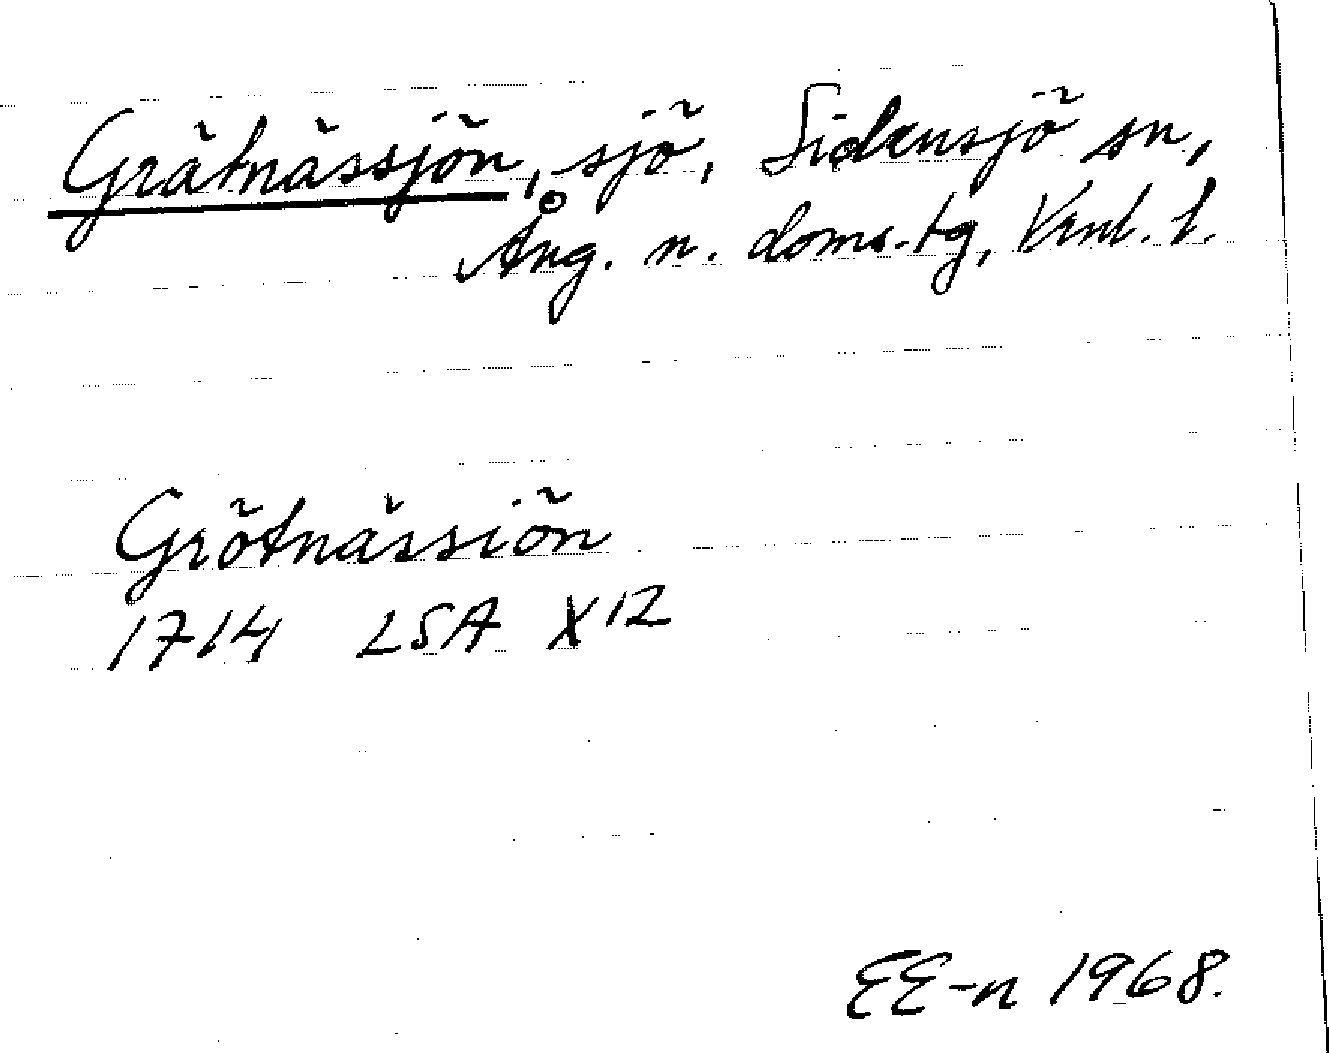 Grätnässjön, sjö, Sidensjö sn,
Ång. n. doms.tg, Vnl. l.
Grötnässiön
1714 LSA X12
EE-n 1968.